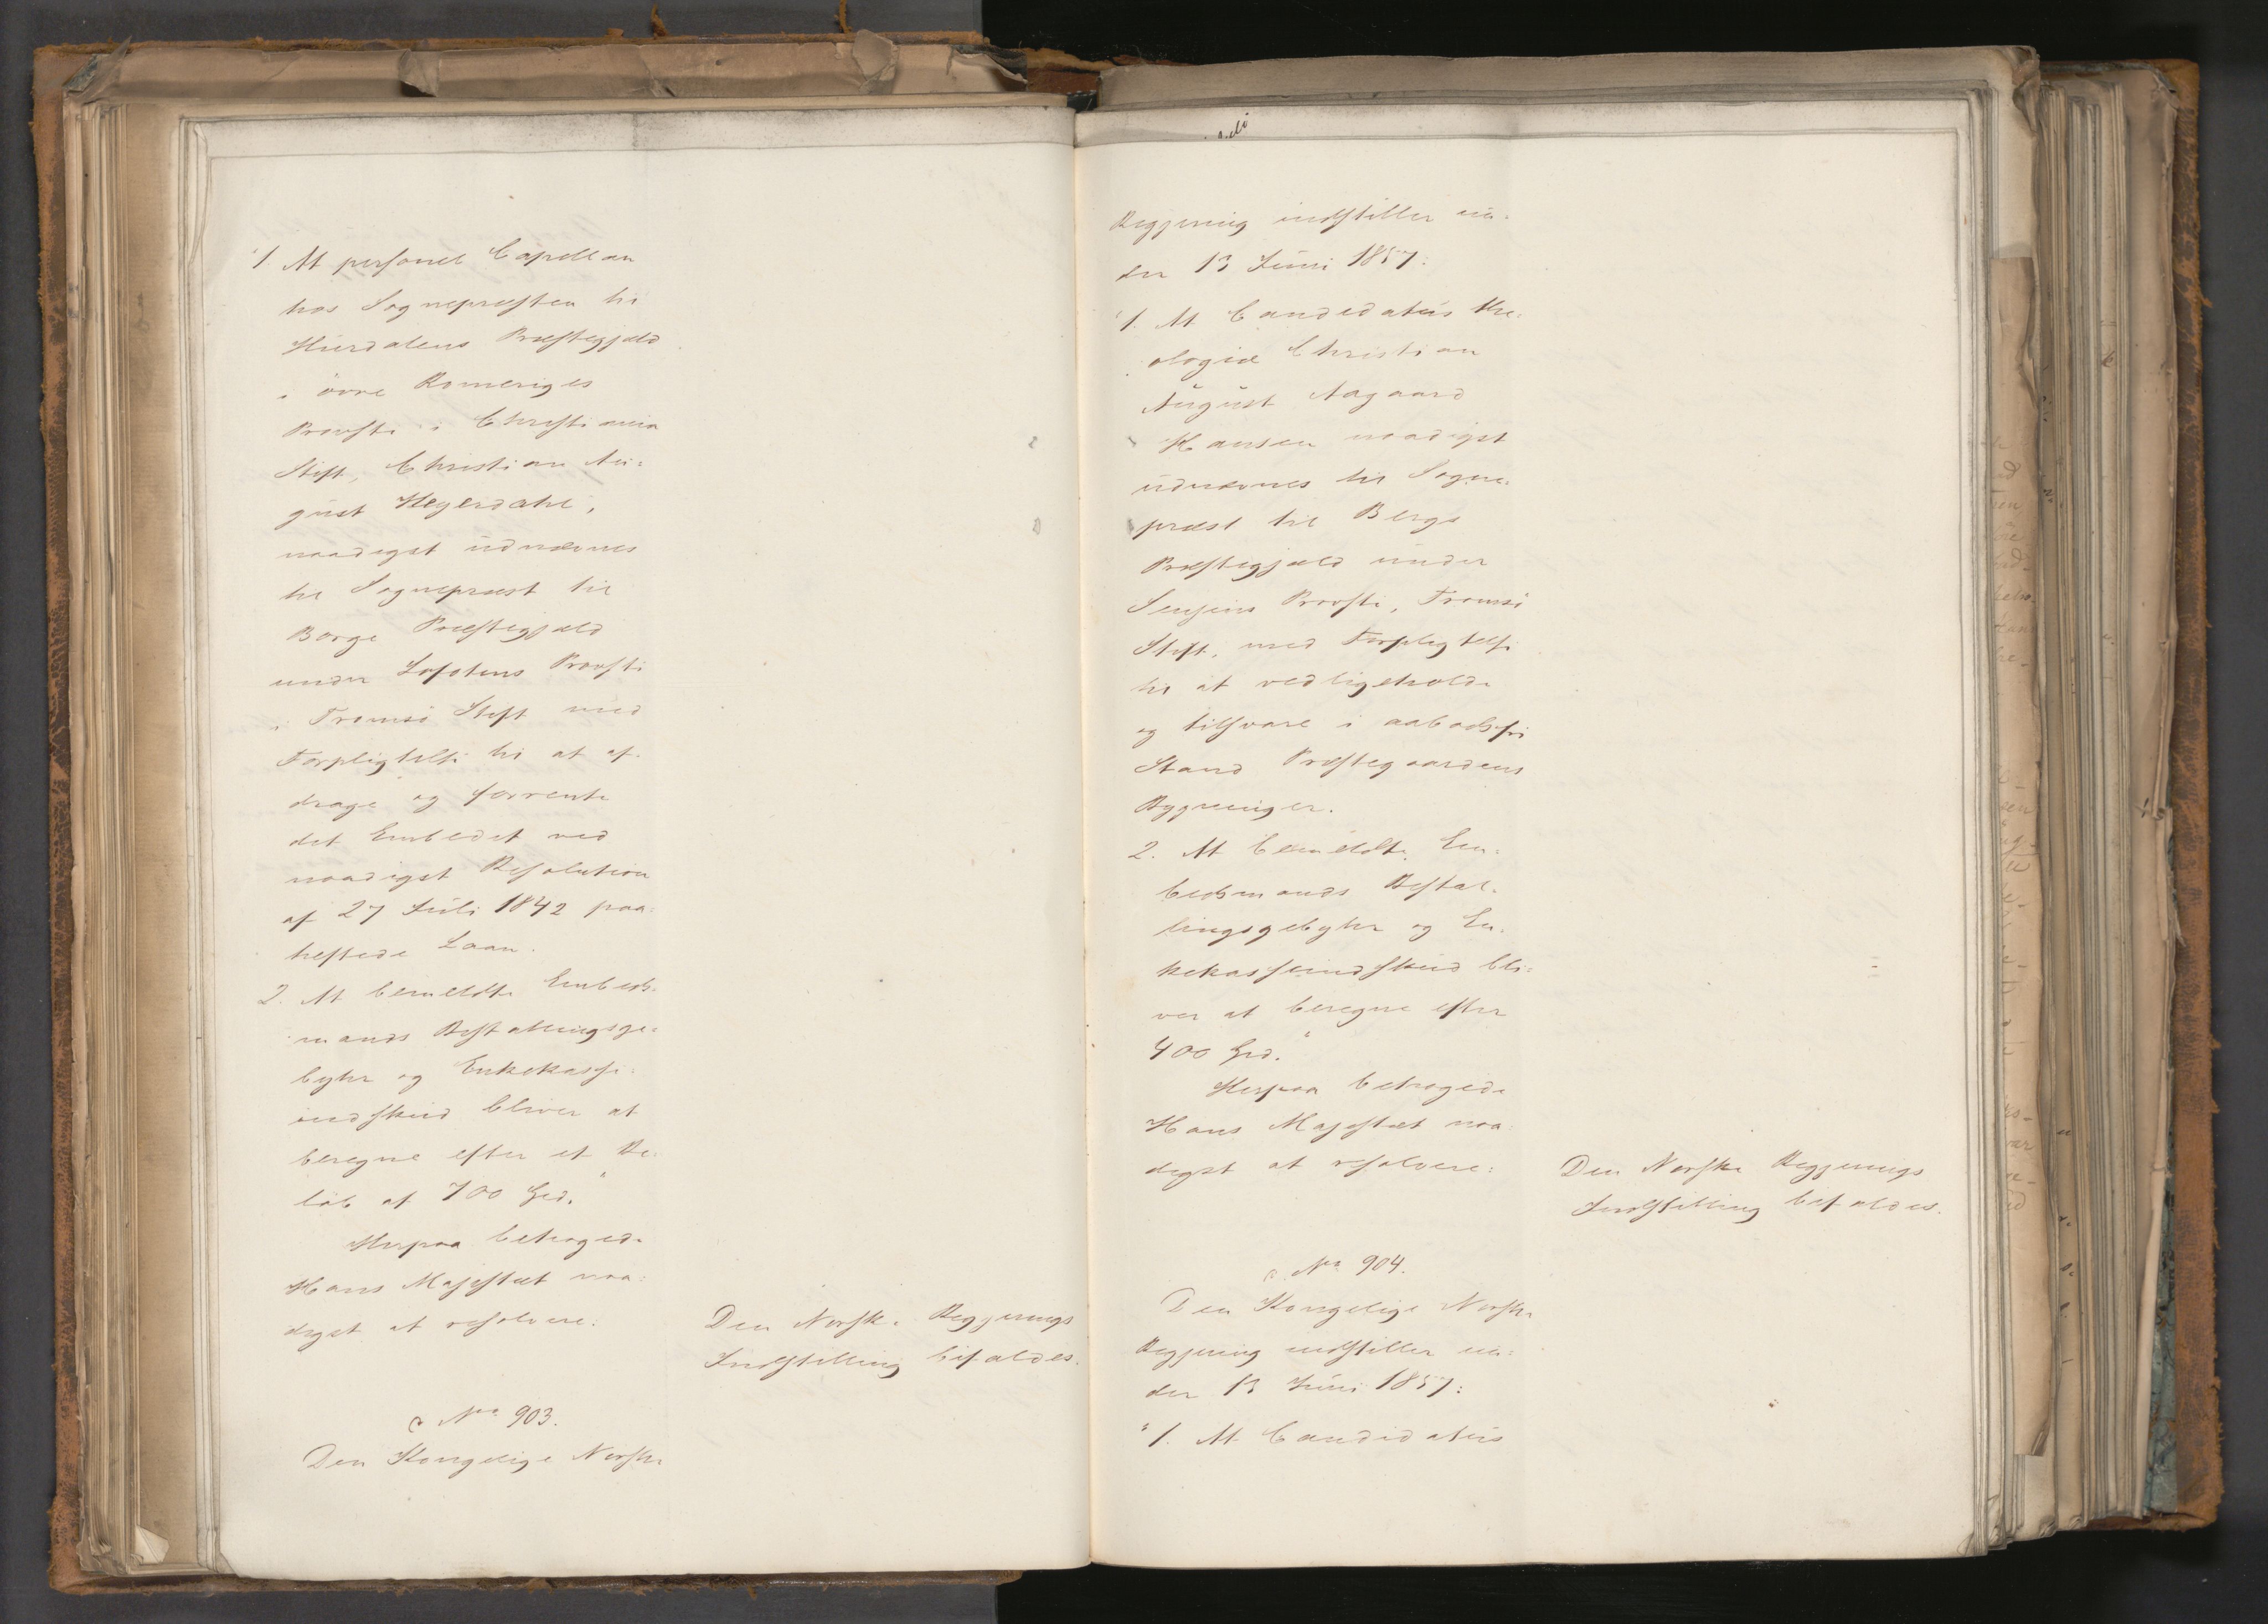 "1. At personel Capellan
hos Sognepresten til
Hurdalens Præstegjæld
i övre Romeriges
Provsti i Christiania
Stift, Christian Au-
gust Heyerdahl,
naadigst udnævnes
til Sognepræst til
Borge Præstegjæld
under Lofotens Provsti
i Tromsö Stift med
Forpligtelse til at af-
drage og forrente
det Embedet ved
naadigst Resolution
af 27 Juli 1842 paa-
heftede Laan.
2. At bemeldte Embeds-
mands Bestallingsge-
byhr og Enkekasse-
indskud bliver at
beregne efter et Be-
löb af 700 Spd."
Herpaa behagede
Hans Majestæt naa-
digst at resolvere:
Den Norske Regjerings
Indstilling bifaldes.
No 903.
Den Kongelige Norske
Regjering indstiller un-
der 13 Juni 1857:
"1. At Candidatus the-
ologiæ Christian
August Aagaard
Hansen naadigst
udnævnes til Sogne-
præst til Bergs
Præstegjæld under
Senjens Provsti, Tromsö
Stift, med Forpligtelse
til at vedligeholde
og tilsvare i aabodsfri
Stand Præstegaardens
Bygninger.
2. At bemeldte Em-
bedsmands Bestal-
lingsgebyhr og En-
kekasseindskud bli-
ver at beregne efter
400 Spd."
Herpaa behagede
Hans Majestæt naa-
digst at resolvere:
Den Norske Regjerings
Indstilling bifaldes.
No 904.
Den Kongelige Norske
Regjering indstiller un-
der 13 Juni 1857:
"1. At Candidatus